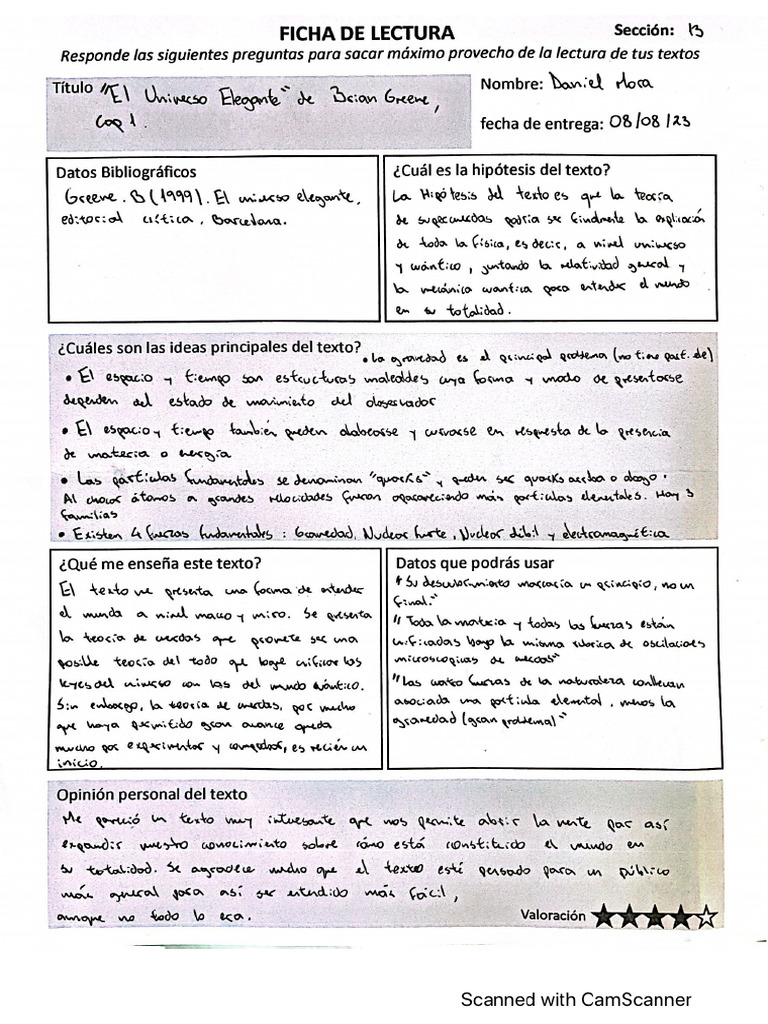 FICHA DE LECTURA
Sección: B
Responde las siguientes preguntas para sacar máximo provecho de la lectura de tus textos
Título "El Universo Elegante" de Brian Greene,
Cap 1.
Nombre: Daniel Mora
fecha de entrega: 08/08/23
Datos Bibliográficos
Greene. B (1999). El universo elegante,
editorial crítica, Barcelona.
¿Cuál es la hipótesis del texto?
La Hipótesis del texto es que la teoría
de supercuerdas podría ser finalmente la explicación
de toda la física, es decir, a nivel universo
y cuántico, juntando la relatividad general y
la mecánica cuantica para entender el mundo
en su totalidad.
¿Cuáles son las ideas principales del texto?
• La gravedad es el principal problema (no tiene part. de)
• El espacio y tiempo son estructuras maleables cuya forma y modo de presentarse
dependen del estado de movimiento del observador
• El espacio y tiempo también pueden alabearse y curvarse en respuesta de la presencia
de materia o energía
• Las partículas fundamentales se denominan "quarks" y pueden ser quarks arriba o abajo.
Al chocar átomos a grandes velocidades fueron apareciendo más partículas elementales. Hay 3
familias
• Existen 4 fuerzas fundamentales: Gravedad, Nuclear fuerte, Nuclear débil y electromagnética
¿Qué me enseña este texto?
El texto me presenta una forma de entender
el mundo a nivel macro y micro. Se presenta
la teoría de cuerdas que promete ser una
posible teoría del todo que logre unificar las
leyes del universo con las del mundo cuántico.
Sin embargo, la teoría de cuerdas, por mucho
que haya permitido gran avance queda
mucho por experimentar y comprobar, es recién un
inicio.
Datos que podrás usar
"Su descubrimiento marcaría un principio, no un
final."
"Toda la materia y todas las fuerzas están
unificadas bajo la misma rúbrica de oscilaciones
microscopicas de cuerdas"
"Las cuatro fuerzas de la naturaleza conllevan
asociada una partícula elemental, menos la
gravedad (gran problema)"
Opinión personal del texto
Me pareció un texto muy interesante que nos permite abrir la mente par así
expandir nuestro conocimiento sobre cómo está constituido el mundo en
su totalidad. Se agradece mucho que el texto esté pensado para un público
más general para así ser entendido más fácil,
aunque no todo lo era.
Valoración
Scanned with CamScanner